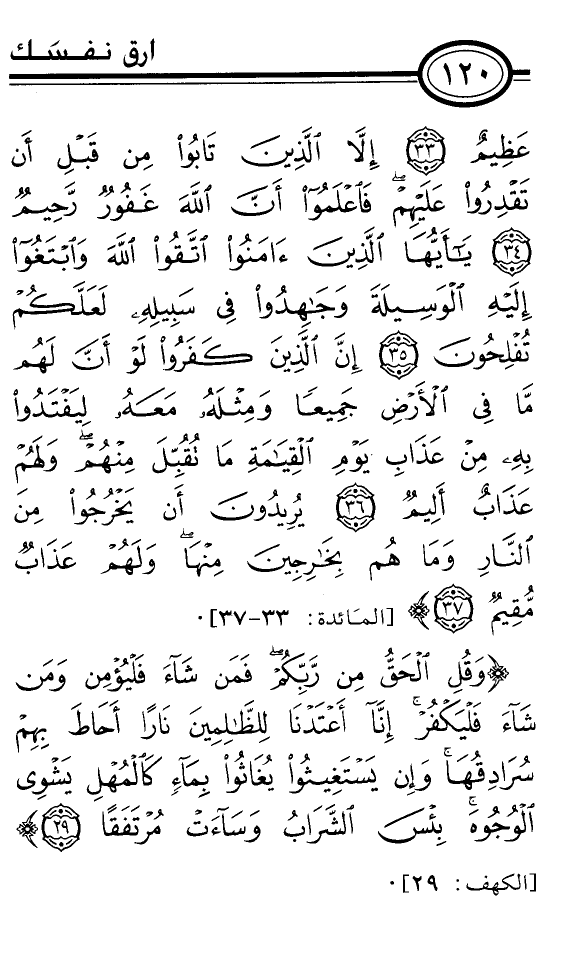 ارق نـفـسَـك
١٢٠
عَظِيمٌ ٣٣ إِلَّا ٱلَّذِينَ تَابُوا۟ مِن قَبْلِ أَن
تَقْدِرُوا۟ عَلَيْهِمْ ۖ فَٱعْلَمُوٓا۟ أَنَّ ٱللَّهَ غَفُورٌ رَّحِيمٌ
٣٤ يَـٰٓأَيُّهَا ٱلَّذِينَ ءَامَنُوا۟ ٱتَّقُوا۟ ٱللَّهَ وَٱبْتَغُوٓا۟
إِلَيْهِ ٱلْوَسِيلَةَ وَجَـٰهِدُوا۟ فِى سَبِيلِهِۦ لَعَلَّكُمْ
تُفْلِحُونَ ٣٥ إِنَّ ٱلَّذِينَ كَفَرُوا۟ لَوْ أَنَّ لَهُم
مَّا فِى ٱلْأَرْضِ جَمِيعًا وَمِثْلَهُۥ مَعَهُۥ لِيَفْتَدُوا۟
بِهِۦ مِنْ عَذَابِ يَوْمِ ٱلْقِيَـٰمَةِ مَا تُقُبِّلَ مِنْهُمْ ۖ وَلَهُمْ
عَذَابٌ أَلِيمٌ ٣٦ يُرِيدُونَ أَن يَخْرُجُوا۟ مِنَ
ٱلنَّارِ وَمَا هُم بِخَـٰرِجِينَ مِنْهَا ۖ وَلَهُمْ عَذَابٌ
مُّقِيمٌ ٣٧﴾ [المائدة: ٣٣-٣٧].
﴿وَقُلِ ٱلْحَقُّ مِن رَّبِّكُمْ ۖ فَمَن شَآءَ فَلْيُؤْمِن وَمَن
شَآءَ فَلْيَكْفُرْ ۚ إِنَّآ أَعْتَدْنَا لِلظَّـٰلِمِينَ نَارًا أَحَاطَ بِهِمْ
سُرَادِقُهَا ۚ وَإِن يَسْتَغِيثُوا۟ يُغَاثُوا۟ بِمَآءٍ كَٱلْمُهْلِ يَشْوِى
ٱلْوُجُوهَ ۚ بِئْسَ ٱلشَّرَابُ وَسَآءَتْ مُرْتَفَقًا ٢٩﴾
[الكهف: ٢٩].